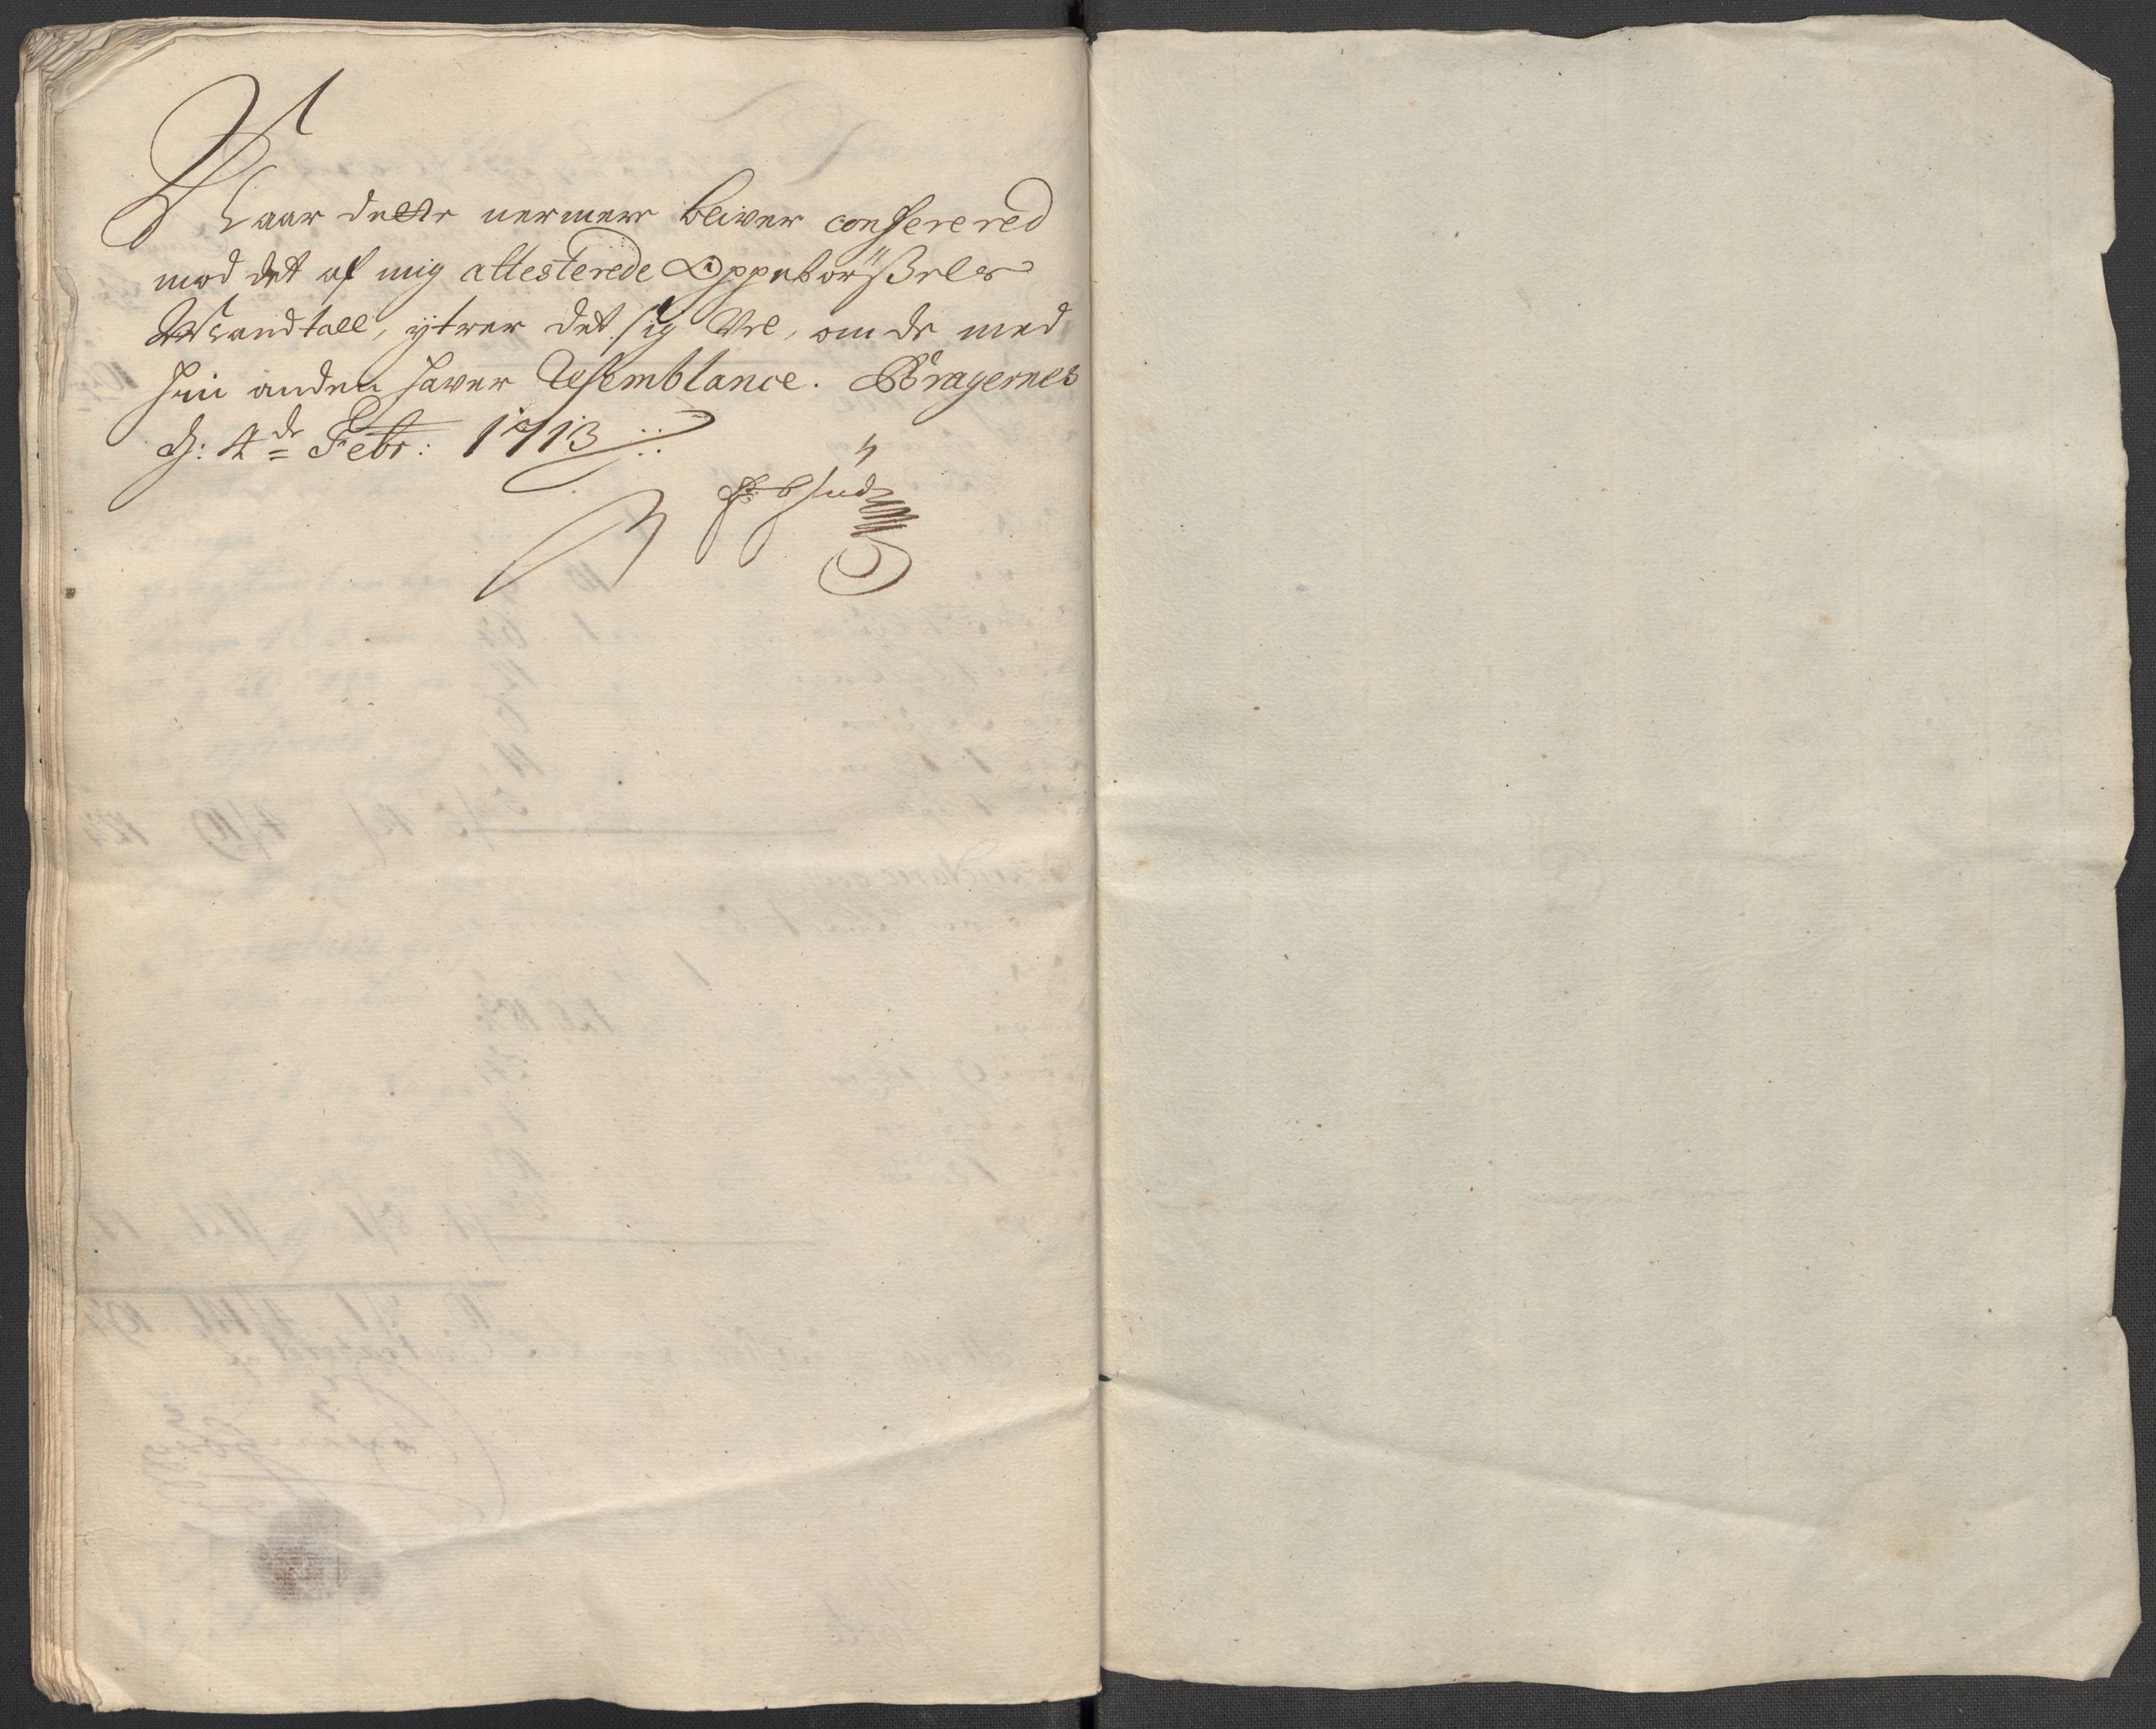 Naar dette nermere bliver conferered
mod det af mig attesterede Oppebørsels
Mandtall, ytrer det sig Vel, om de med
hin anden haver Resemblance. Bragernes
d: 4de Febr: 1713